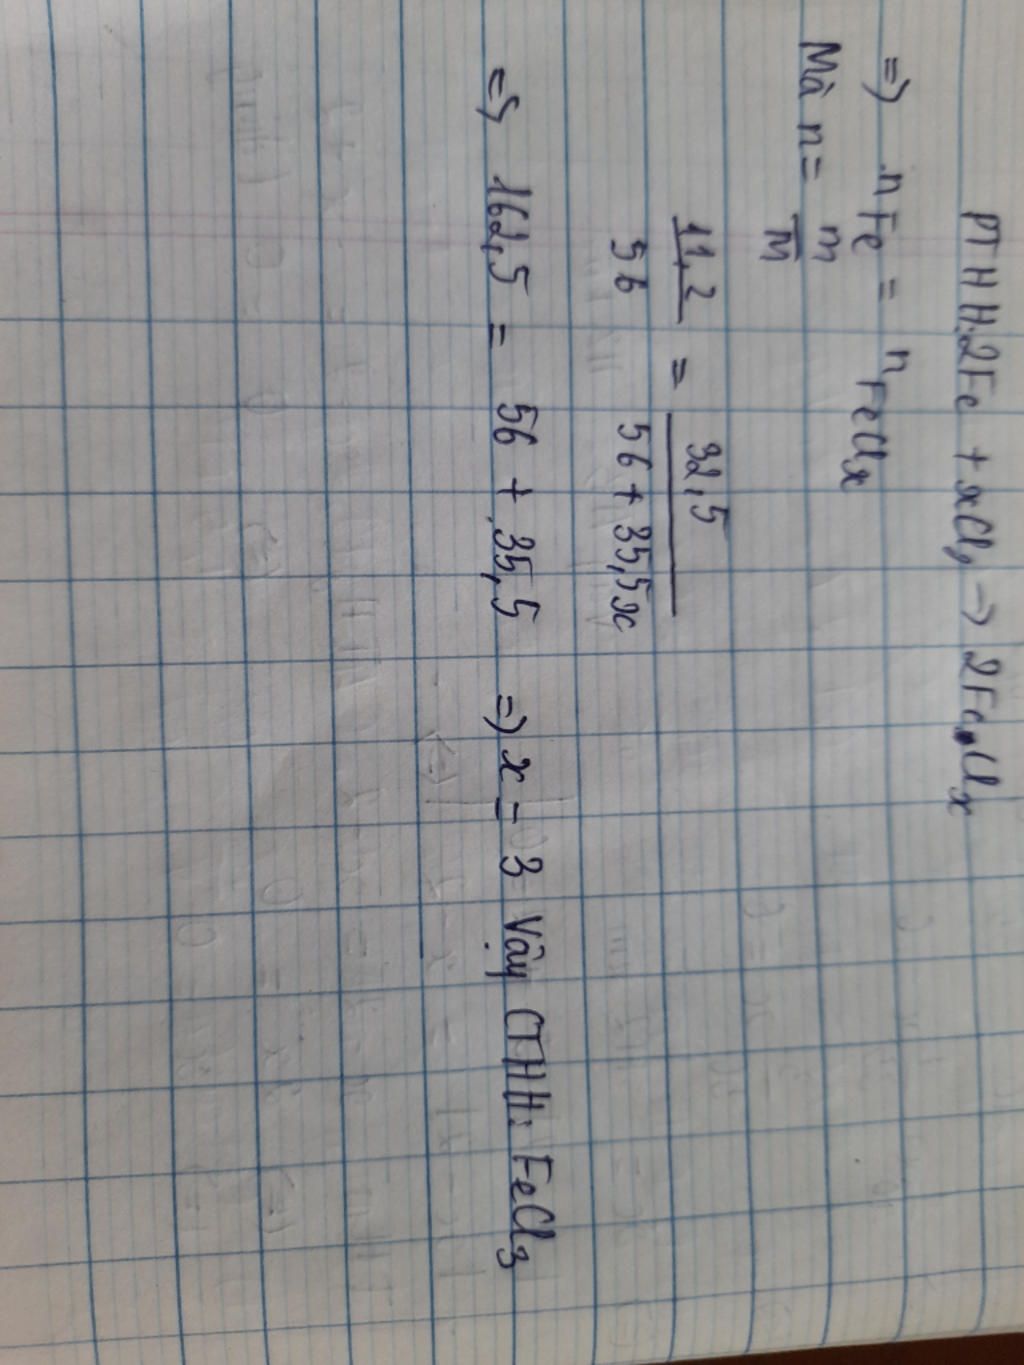 PTHH: 2Fe + xCl₂ → 2FeClₓ
=> n Fe = n FeClₓ
Mà n = m/M
11,2/56 = 32,5/(56 + 35,5x)
=> 162,5 = 56 + 35,5 => x = 3 Vậy CTHH: FeCl₃